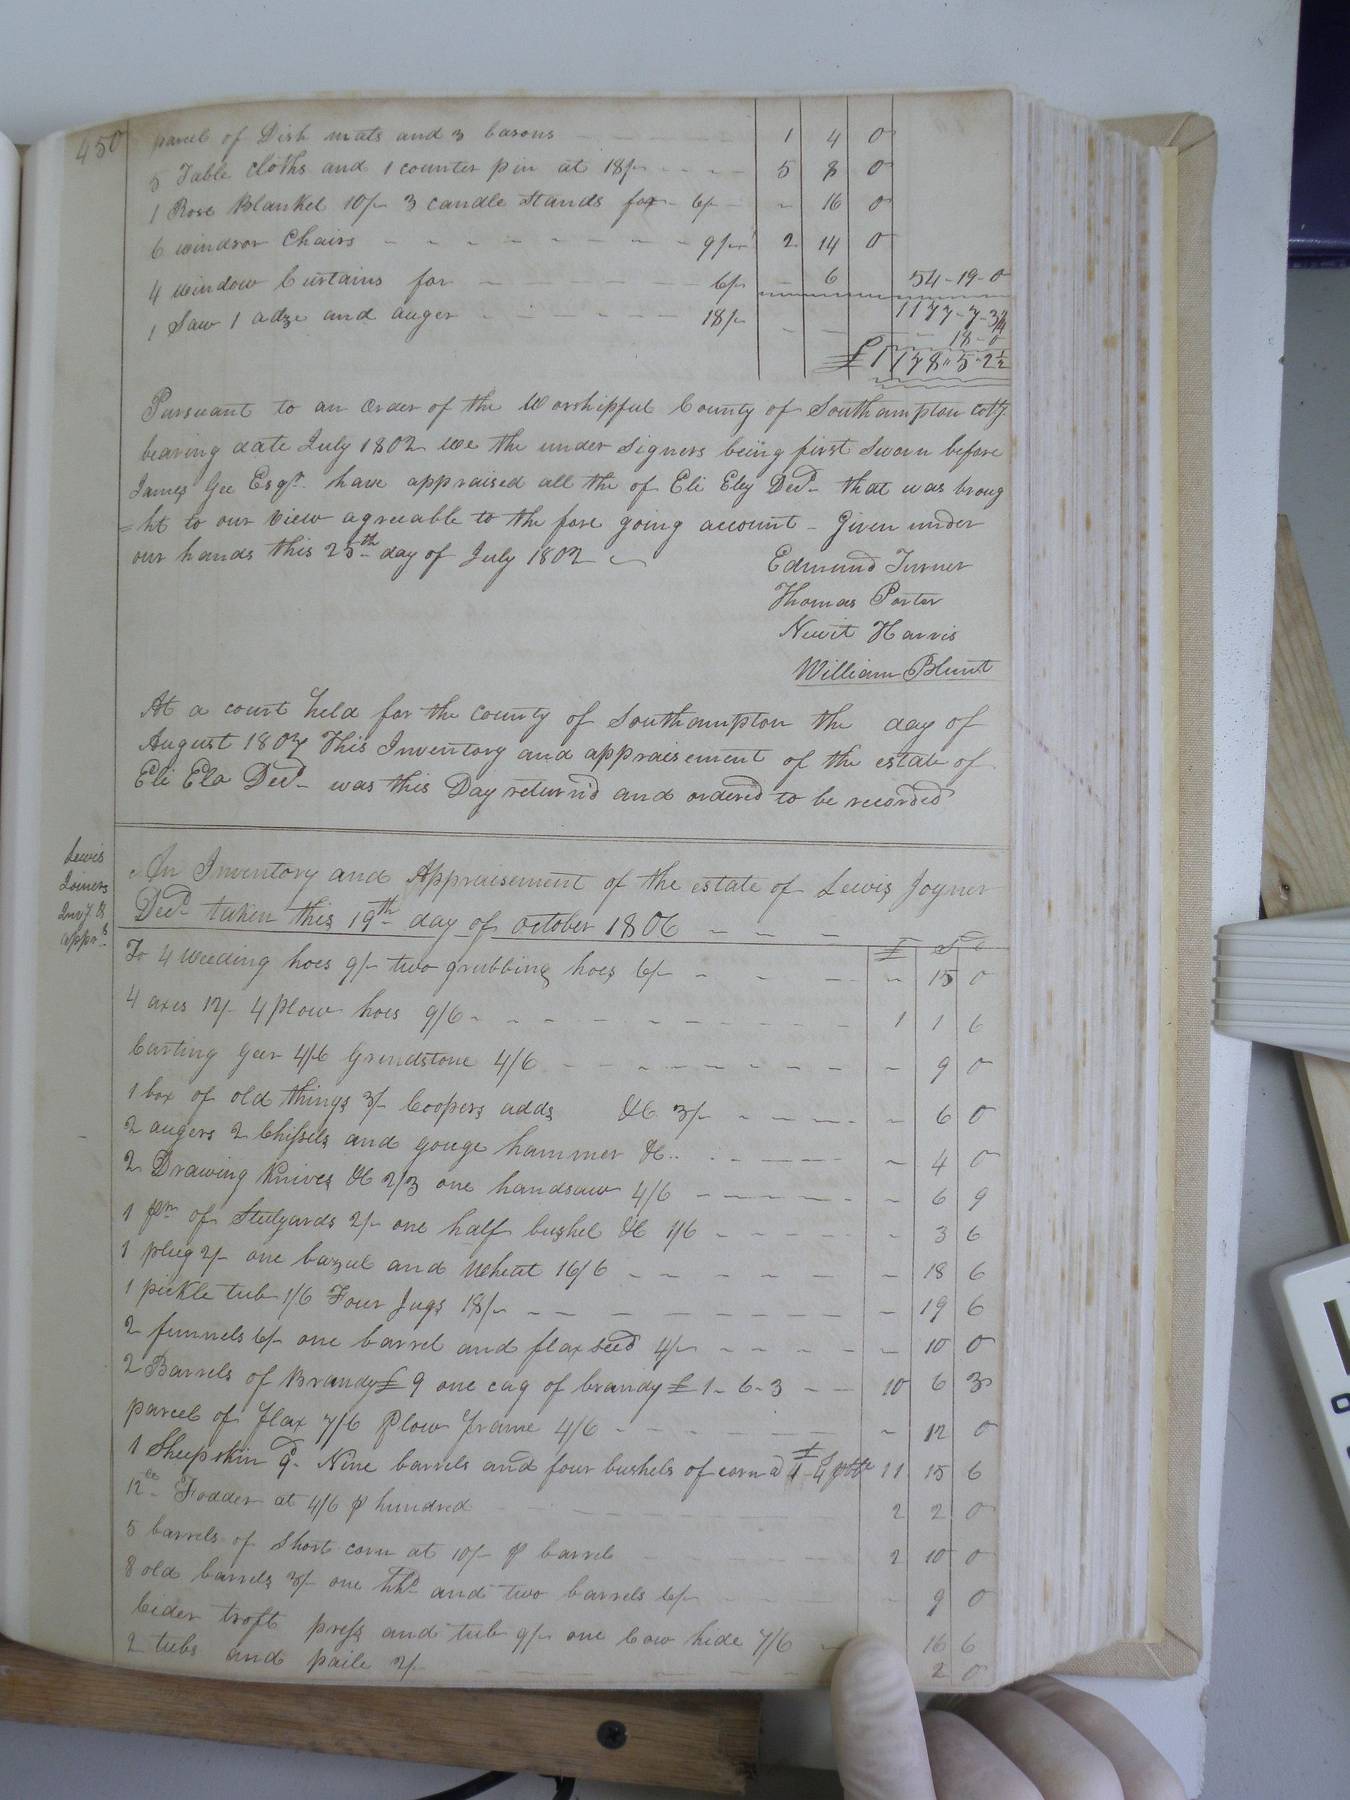 450
parcel of Dish mats and 3 basons 1 4 0
5 Table cloths and 1 counter pin at 18/- 5 8 0
1 Rose Blanket 10/- 3 candle Stands for 6/- 16 0
6 windsor Chairs 9/- 2 14 0
4 window Curtains for 6/- 6 54-19-0
1177-7-3¼
1 Saw 1 adze and auger 18/- 18-0
£1178"5-2½
Pursuant to an order of the Worshipful County of Southampton
bearing date July 1802 we the under Signers being first Sworn before
James Gee Esqr. have appraised all the of Eli Eley Decd. that was broug
=ht to our view agreeable to the fore going account - Given under
our hands this 25th day of July 1802
Edmund Turner
Thomas Porter
Newit Harris
William Blunt
At a court held for the county of Southampton the day of
August 1807 This Inventory and appraisement of the estate of
Eli Ela Decd. was this Day return'd and ordered to be recorded
Lewis
Joiners
Invy. &
apprs.
An Inventory and Appraisement of the estate of Lewis Joyner
Decd. taken this 19th day of october 1806
£ S
To 4 weeding hoes 9/- two grubbing hoes 6/- 15 0
4 axes 12/- 4 plow hoes 9/6 1 1 6
Carting Geer 4/6 Grindstone 4/6 9 0
1 box of old things 3/- Coopers adds &C 3/- 6 0
2 augers 2 Chissels and gouge hammer &C.. 4 0
2 Drawing Knives &C 2/3 one handsaw 4/6 6 9
1 pr. of Stelyards 2/- one half bushel &C 1/6 3 6
1 plug 2/- one barrel and wheat 16/6 18 6
1 pickle tub 1/6 Four Jugs 18/- 19 6
2 funnels 6/- one barrel and flax seed 4/- 10 0
2 Barrels of Brandy £9 one cag of brandy £1-6-3 10 6 3
parcel of flax 7/6 Plow frame 4/6 12 0
1 Sheepskin 9d. Nine barrels and four bushels of corn a £1-4 11 15 6
12 Fodder at 4/6 p hundred 2 2 0
5 barrels of Short corn at 10/- p barrel 2 10 0
8 old barrels 3/- one hhd and two barrels 6/- 9 0
Cider troft press and tub 9/- one Cow hide 7/6 16 6
2 tubs and paile 2/- 2 0